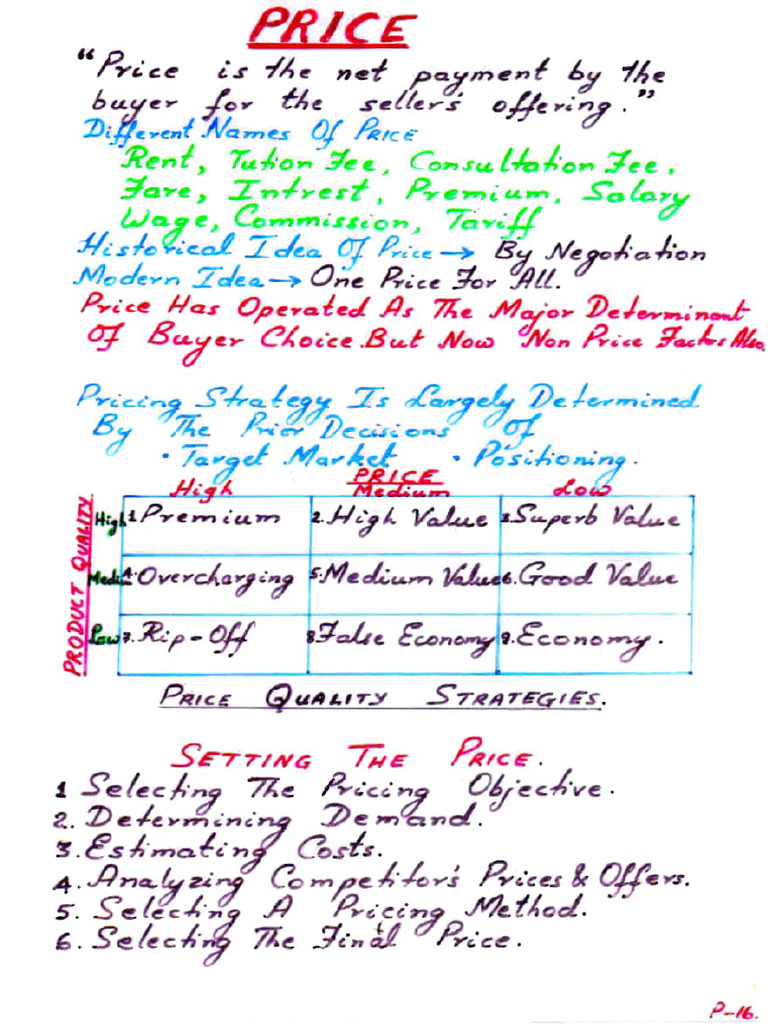 PRICE
"Price is the net payment by the
buyer for the seller's offering."
Different Names Of Price
Rent, Tution Fee, Consultation Fee,
Fare, Intrest, Premium, Salary
Wage, Commission, Tariff
Historical Idea Of Price → By Negotiation
Modern Idea → One Price For All.
Price Has Operated As The Major Determinant
Of Buyer Choice. But Now Non Price Factors Also.
Pricing Strategy Is Largely Determined
By The Prior Decisions Of
· Target Market · Positioning.
PRICE
High Medium Low
PRODUCT QUALITY
High 1. Premium 2. High Value 3. Superb Value
Medium 4. Overcharging 5. Medium Value 6. Good Value
Low 7. Rip-Off 8. False Economy 9. Economy.
PRICE QUALITY STRATEGIES.
SETTING THE PRICE.
1 Selecting The Pricing Objective.
2. Determining Demand.
3. Estimating Costs.
4. Analyzing Competitor's Prices & Offers.
5. Selecting A Pricing Method.
6. Selecting The Final Price.
P-16.